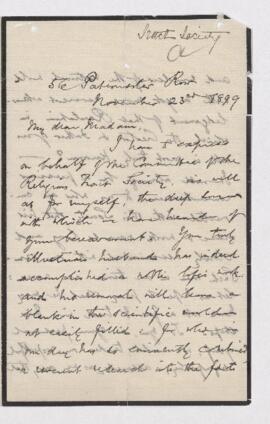 Tract Society
56 Paternoster Row
November 23rd 1899
My dear Madam,
I have to express
on behalf of the Committee of the
Religious Tract Society as well
as for myself, the deep sorrow
with which we have heard of
your bereavement. Your truly
illustrious husband has indeed
accomplished a noble life's work
and his removal will leave a
blank in the scientific world
not easily filled - for who
in our day has so eminently combined
a reverent research into the facts